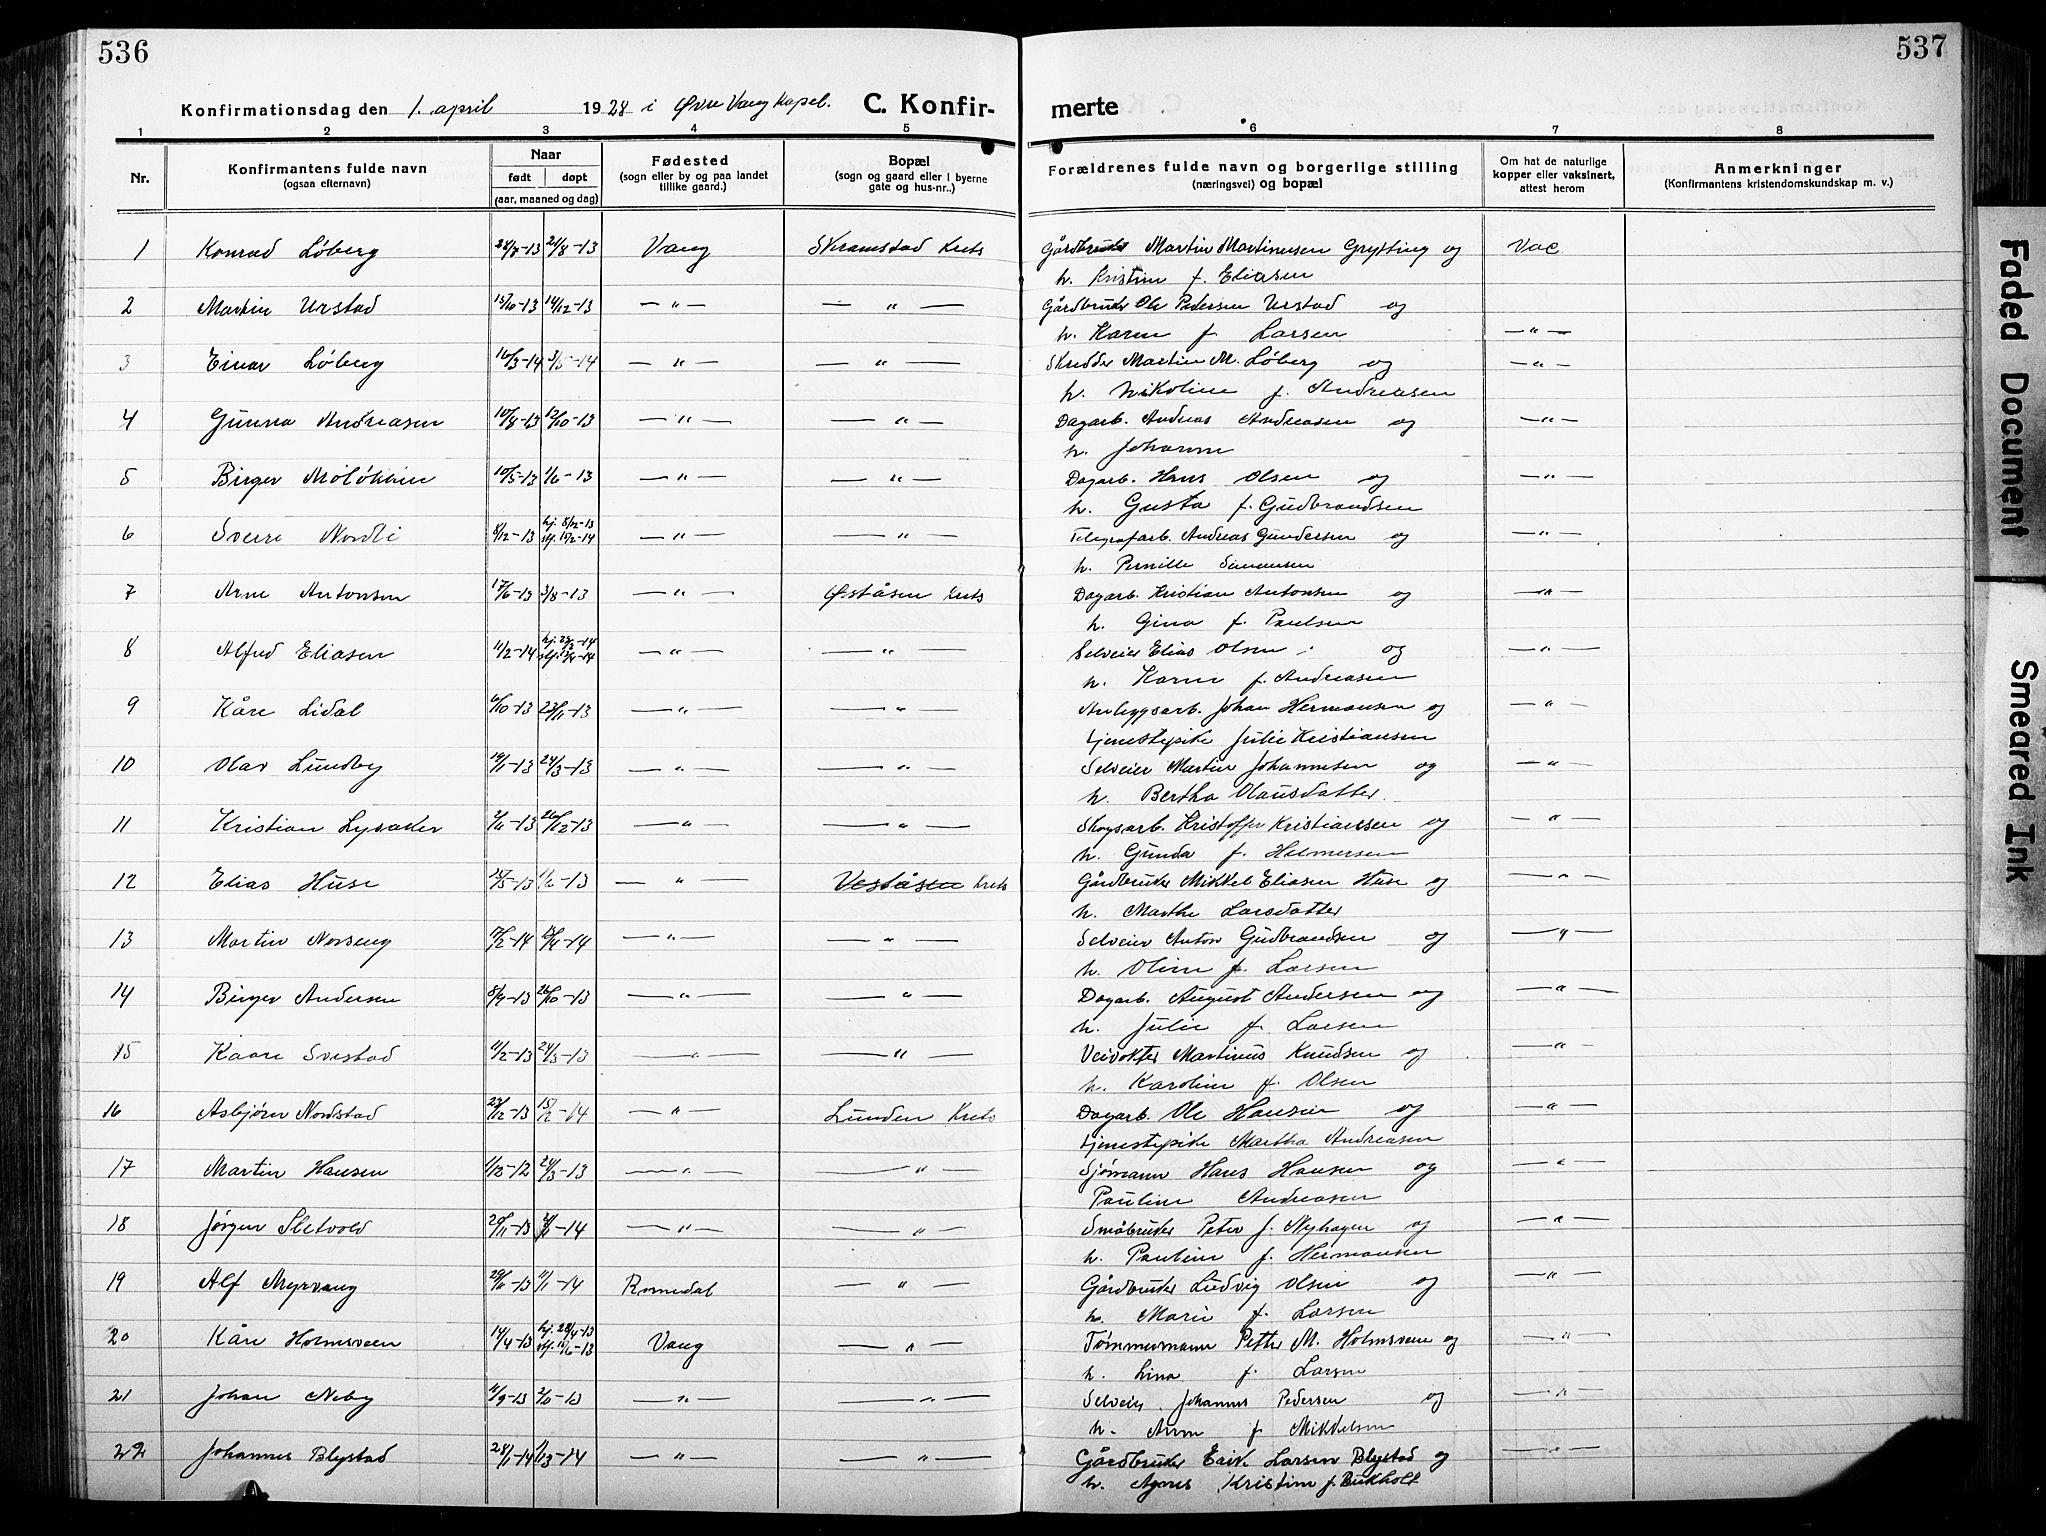 536
537
Konfirmationsdag den 1. april 1928 i Øvre Vang Kapel. C. Konfir-
merte
1 2 3 4 5 6 7 8
Nr.
Konfirmantens fulde navn
(ogsaa efternavn)
Naar
født døpt
(aar, maaned og dag)
Fødested
(sogn eller by og paa landet
tillike gaard.)
Bopæl
(sogn og gaard eller i byerne
gate og hus-nr..)
Forældrenes fulde navn og borgerlige stilling
(næringsvei) og bopæl
Om hat de naturlige
kopper eller vaksinert,
attest herom
Anmerkninger
(Konfirmantens kristendomskundskap m. v.)
1 Konrad Løberg 21/8-13 Vang Skramstad Krets Gårdbruker Martin Martinusen Grytting og Vac.
h. Kristine f. Eliasen
2 Martin Urstad 15/10-13 14/12-13 —"— —"— Gårdbruker Ole Pedersen Urstad og
h. Karen f. Larsen —"—
3 Einar Løberg 16/3-14 3/5-14 —"— —"— Skredder Martin M. Løberg og —"—
h. Nikoline f. Andreasen
4 Gunna Andreasen 10/8-13 12/10-13 —"— —"— Dagarb. Andreas Andreasen og —"—
h. Johanne
5 Birger Moløkken 10/5-13 1/6-13 —"— —"— Dagarb. Hans Olsen og —"—
h. Gusta f. Gudbrandsen
6 Sverre Nordli 8/12-13 hj. 8/12-13 —"— —"— Telegrafarb. Andreas Gundersen og —"—
15/2-14
h. Pernille Simensen
7 Arne Antonsen 17/6-13 3/8-13 —"— Øståsen Krets Dagarb. Kristian Antonsen og —"—
h. Gina f. Paulsen
8 Alfred Eliasen 11/2-14 —"— —"— Selveier Elias Olsen og —"—
h. Karen f. Andreasen
9 Kåre Lidal 6/10-13 23/11-13 —"— —"— Anleggsarb. Johan Hermansen og —"—
tjenestepike Julie Kristiansen
10 Olav Lundby 19/1-13 24/3-13 —"— —"— Selveier Martin Johannesen og —"—
h. Bertha Olausdatter.
11 Kristian Lysaker 26/12-13 —"— —"— Skogsarb. Kristoffer Kristianssen og —"—
h. Gunda f. Helmersen
12 Elias Huse 1/6-13 —"— Veståsen Krets Gårdbruker Mikkel Eliasen Huse og —"—
h. Marthe Larsdatter
13 Martin Norseng —"— —"— Selveier Anton Gudbrandsen og —"—
h. Oline f. Larsen
14 Birger Andersen 8/9-13 26/10-13 —"— —"— Dagarb. August Andersen og —"—
h. Julie f. Larsen
15 Kaare Svestad 11/2-13 24/3-13 —"— —"— Veivokter Martinus Knudsen og —"—
h. Karoline f. Olsen
16 Asbjørn Nordstad 23/12-13 15/2-14 —"— Lunden Krets Dagarb. Ole Hansen og —"—
tjenestepike Martha Andreasen
17 Martin Hansen 24/3-13 —"— —"— Sjømann Hans Hansen og —"—
Pauline Andreasen
18 Jørgen Sletvold 20/11-13 —"— —"— Småbruker Peter J. Nyhagen og —"—
h. Pauline f. Hermansen
19 Alf Myrvang 11/1-14 Romedal —"— Gårdbruker Ludvig Olsen og —"—
h. Marie f. Larsen
20 Kåre Holmsveen 14/4-13 hj. 28/4-13 Vang —"— Tømmermann Petter M. Holmsveen og —"—
h. Lina f. Larsen
21 Johan Neby —"— —"— Selveier Johannes Pedersen og —"—
h. Anne f. Mikkelsen
22 Johannes Blystad 28/1-14 —"— —"— Gårdbruker Erik Larsen Blystad og —"—
h. Agnes Kristine f. Bukholt
Faded Document
Smeared Ink